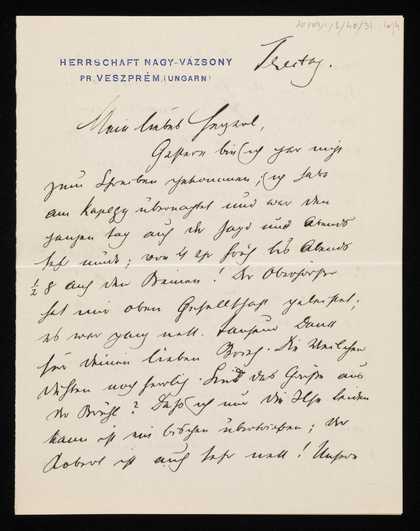 HERRSCHAFT NAGY-VÁZSONY
PR. VESZPRÉM. (UNGARN)
Freitag.
Mein liebes
Gestern bin ich gar nicht
zum Schreiben gekommen; ich habe
am übernachtet und war den
ganzen Tag auf der Jagd und Abends
sehr müde; von 4 Uhr früh bis Abends
½ 8 auf den Beinen! Der Oberförster
hat mir oben Gesellschaft geleistet;
es war ganz nett. Tausend Dank
für Deinen lieben Brief. Die Veilchen
noch herrlich. Sind das Grüße aus
der Brühl? Daß ich nur die leiden
kann ist ein bischen übertrieben; der
Robert ist auch sehr nett! Unsere